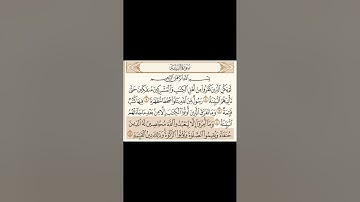 سورة البينة
بسم الله الرحمن الرحيم
لم يكن الذين كفروا من أهل الكتب والمشركين منفكين حتى
تأتيهم البينة ۝١ رسول من الله يتلوا صحفا مطهرة ۝٢ فيها كتب
قيمة ۝٣ وما تفرق الذين أوتوا الكتب إلا من بعد ما جاءتهم
البينة ۝٤ وما أمروا إلا ليعبدوا الله مخلصين له الدين
حنفاء ويقيموا الصلوة ويؤتوا الزكوة وذلك دين القيمة ۝٥